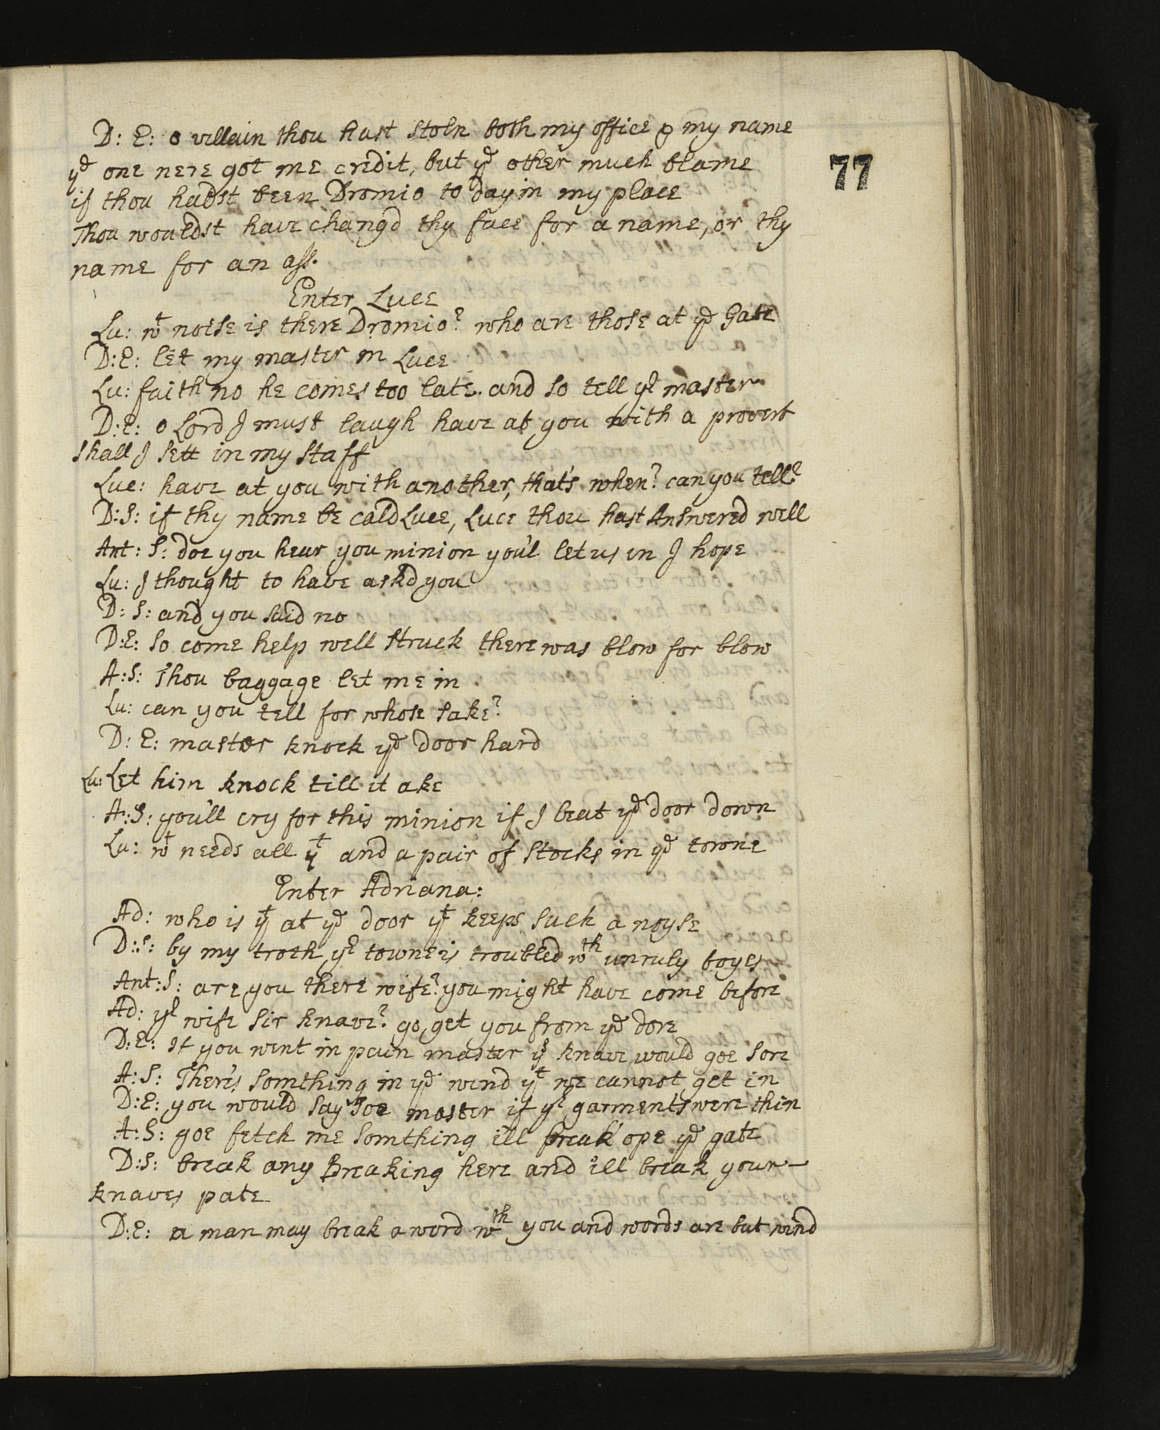 D: E: o villain thou hast stoln both my office & my name
ye one nere got me credit, but ye other much blame
if thou hadst been Dromio to day in my place
Thou wouldst have chang'd thy face for a name, or thy
name for an ass.
Enter Luce
Lu: wt noise is there Dromio? who are those at ye Gate
D:E: let my master in Luce
Lu: faith no he comes too late. and so tell yr master
D:E: o Lord I must laugh have at you with a proverb
shall I sett in my staff
Luc: have at you with another, that's when? can you tell?
D:S: if thy name be cald Luce, Luce thou hast Answered well
Ant: S: doe you hear you minion you'l let us in I hope
Lu: I thought to have askd you
D: S: and you said no
D:E: so come help well struck there was blow for blow
A:S: Thou baggage let me in
Lu: can you tell for whose sake?
D: E: master knock ye door hard
Lu: Let him knock till it ake
A:S: you'll cry for this minion if I beat ye door down
Lu: wt needs all yt and a pair of stocks in ye towne
Enter Adriana:
Ad: who is yt at ye door yt keeps such a noyse
D:S: by my troth yr towne is troubled wth unruly boyes
Ant:S: are you there wife? you might have come before
Ad: yr wife sir knave? go, get you from ye dore
D:E: If you went in pain master ys knave would goe sore
A:S: There's somthing in ye wend yt we cannot get in
D:E: you would say soe master if yr garments were thin
A:S: goe fetch me somthing ill break ope ye gate
D:S: break any Breaking here and i'll break your
knaves pate
D:E: a man may break a word wth you and words are but wind
77